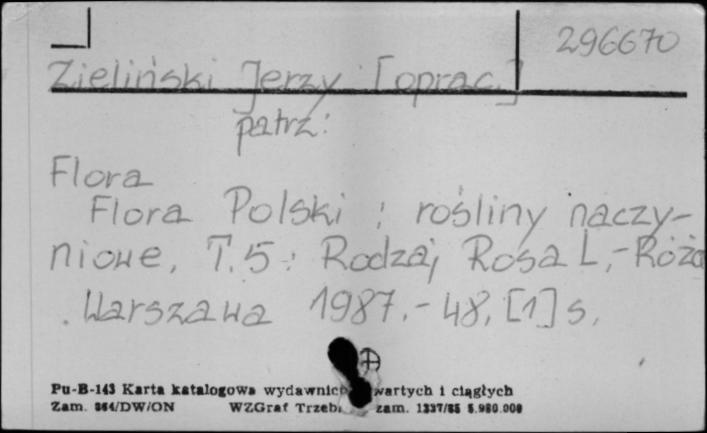 296670
Zieliński Jerzy [oprac.]
patrz:
Flora
Flora Polski : rośliny naczy-
niowe, T.5 : Rodzaj Rosa L. - Róża
Warszawa 1987. - 48, [1] s.
Pu-B-143 Karta katalogowa wydawnic wartych i ciągłych
Zam. 864/DW/ON WZGraf Trzeb. zam. 1337/85 5.980.000